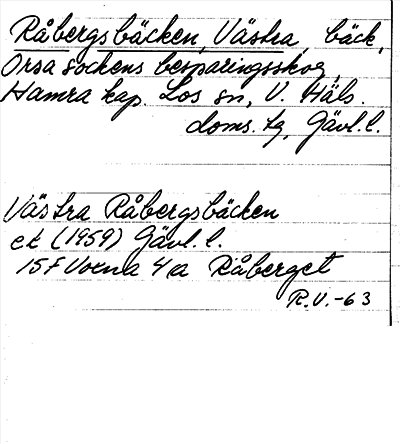 Råbergsbäcken, Västra, bäck,
Orsa sockens besparingsskog,
Hamra kap. Los sn, V. Häls.
doms. tg, Gävl. l.
Västra Råbergsbäcken
ek (1959) Gävl. l.
15F Voxna 4a Råberget
R.V.-63